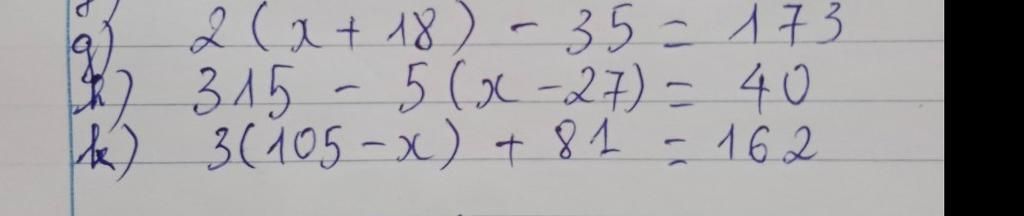 g) 2(x+18) - 35 = 173
h) 315 - 5(x-27) = 40
k) 3(105-x) + 81 = 162